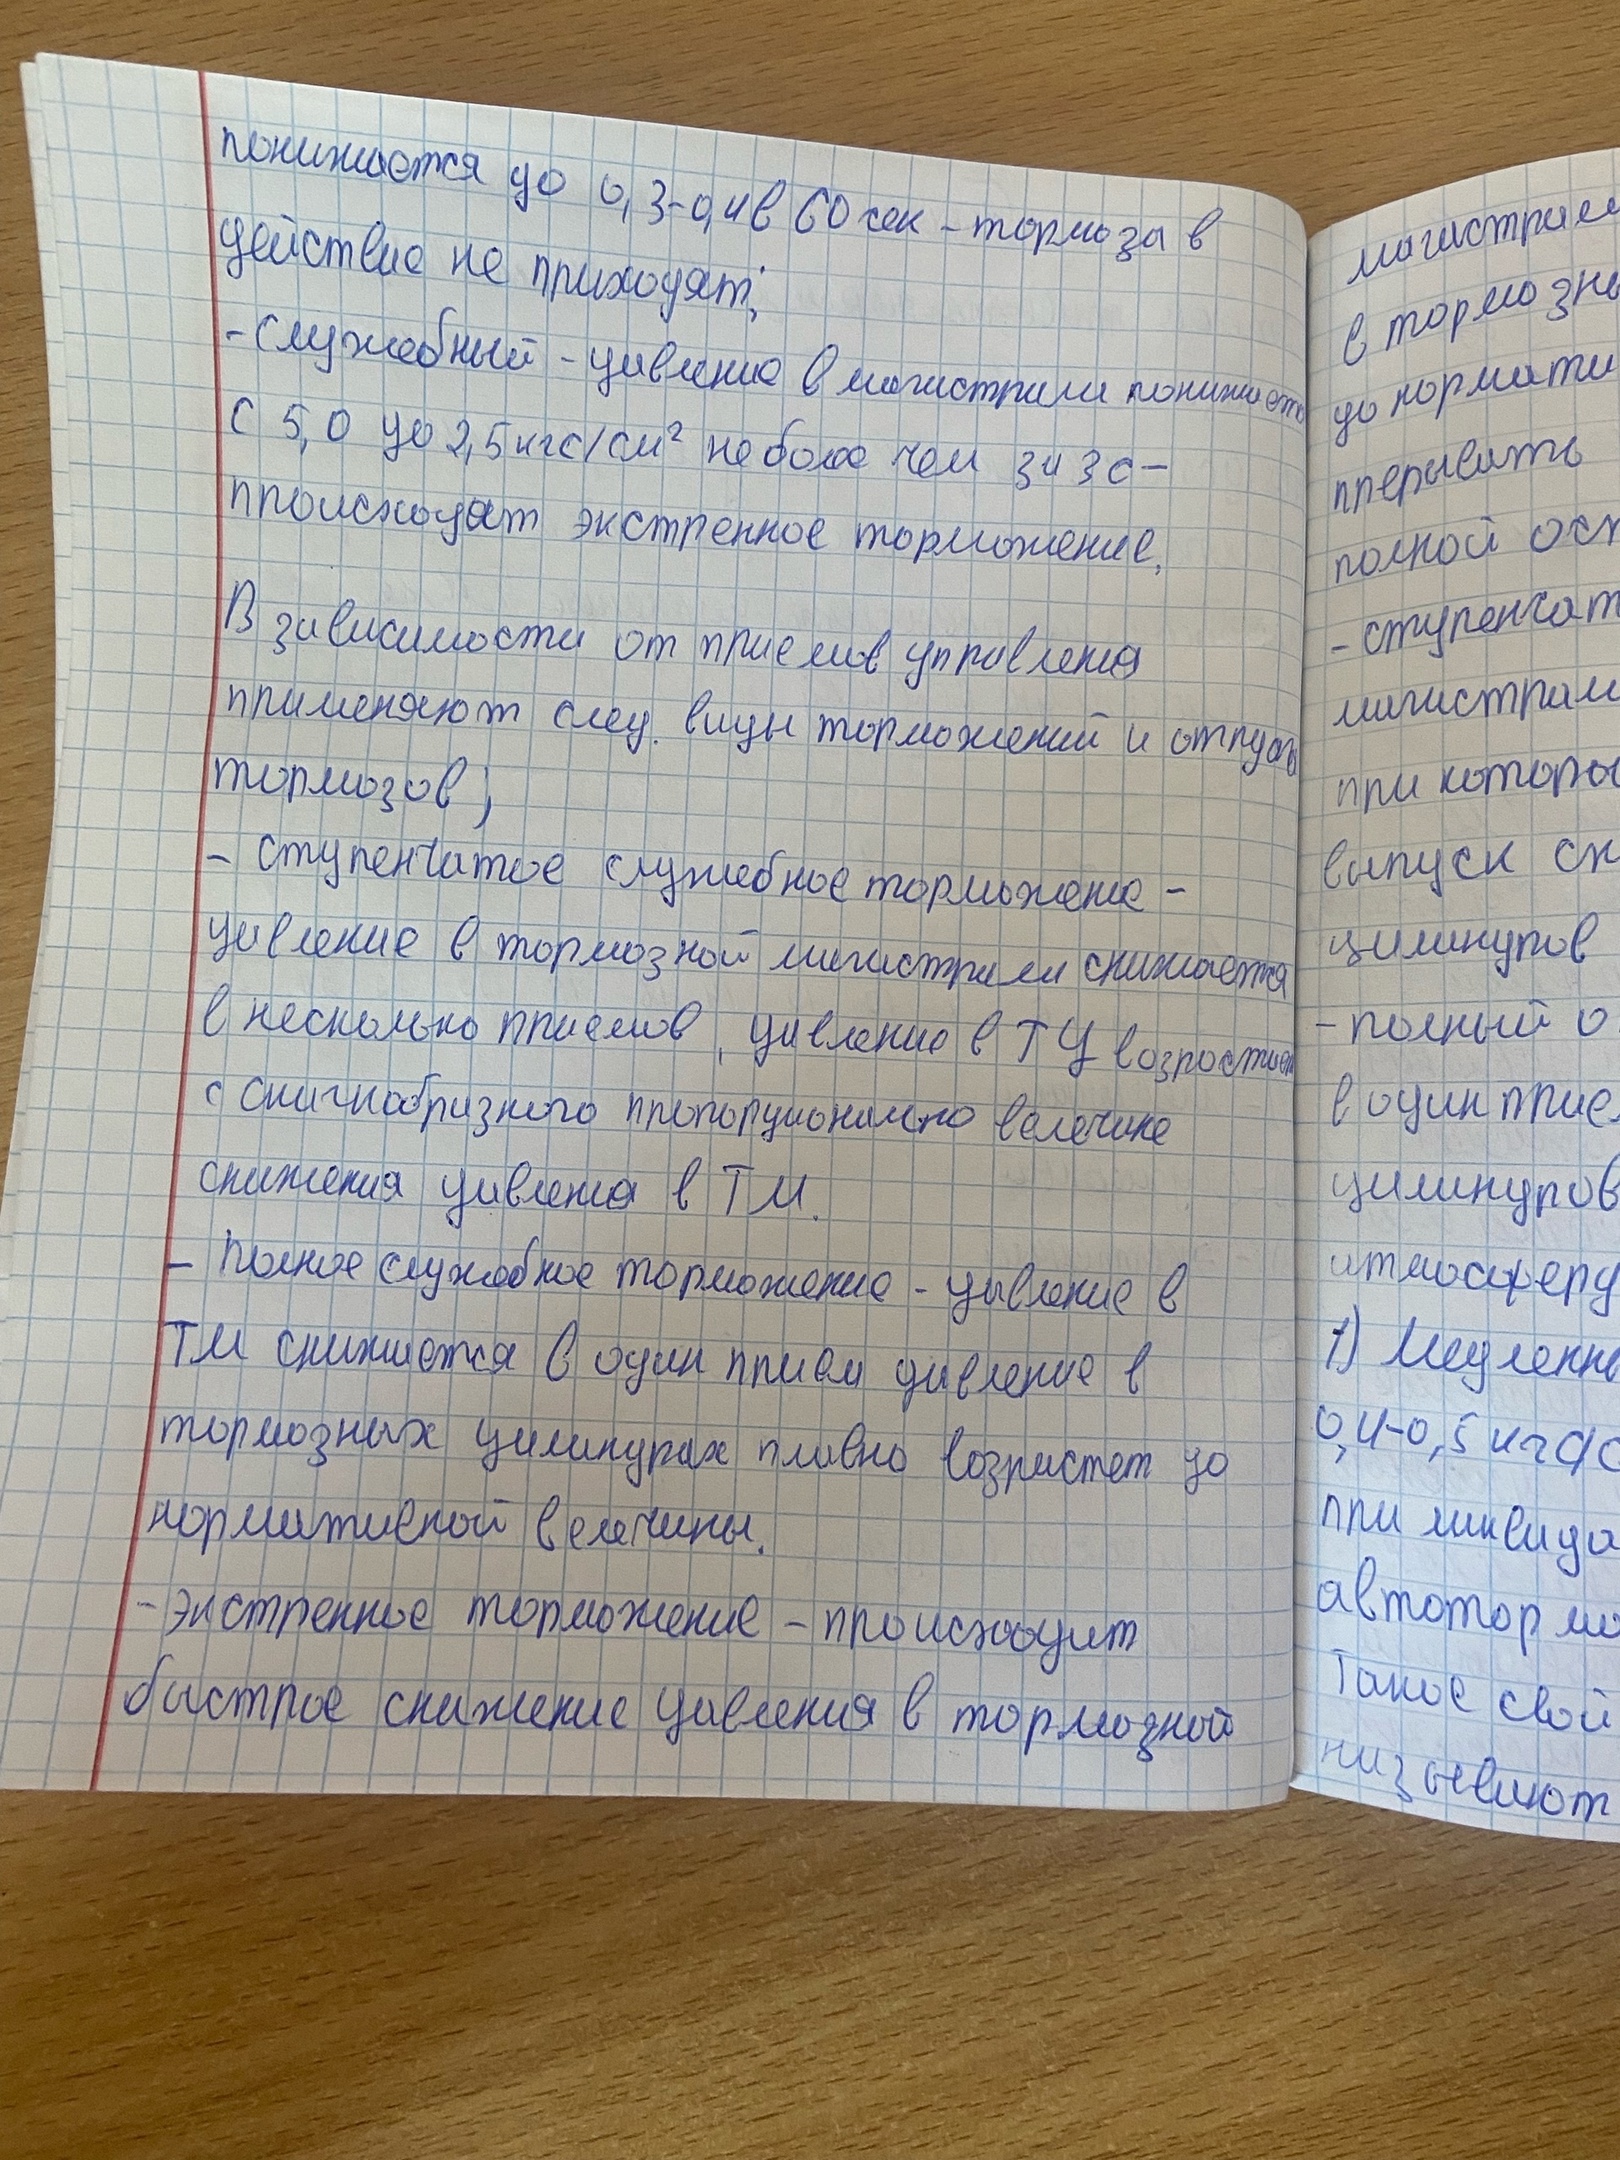 понижается до 0,3-0,4 в 60 сек - тормоза в
действие не приходят;
- Служебный - давление в магистрали понижается
с 5,0 до 2,5 кгс/см² не более чем за 3с -
происходят экстренное торможение.
В зависимости от приемов управления
применяют след. виды торможений и отпуска
тормозов;
- ступенчатое служебное торможение -
давление в тормозной магистрали снижается
в несколько приемов, давление в ТЦ возростает
с пропорционально велечине
снижения давления в ТМ.
- Полное служебное торможение - давление в
ТМ снижается в один прием давление в
тормозных цилиндрах плавно возрастет до
нормативной велечины.
- экстренное торможение - происходит
быстрое снижение давления в тормозной
магистрали
в тормозны
до нормати
прерывать
полной ост
- ступенчат
магистрал
при которы
выпуск сж
цилиндров
- полный о
в один прие
цилиндров
атмосферу
1) Медленн
0,4-0,5 кгс/с
при ликвида
автотормо
Такое свой
называют